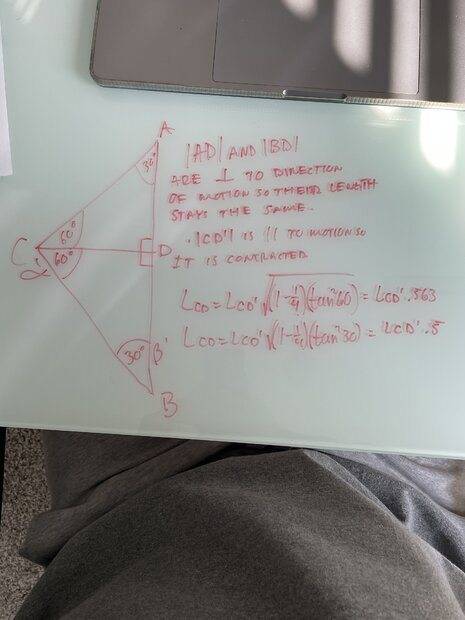 A
30°
|AD| AND |BD|
ARE ⊥ TO DIRECTION
OF MOTION SO THEIR LENGTH
STAYS THE SAME.
60°
C
D
60°
α'
|CD'| IS || TO MOTION SO
IT IS CONTRACTED
L_CD = L_CD' √(1-1/4)(tan²60) = L_CD' .563
L_CD = L_CD' √(1-1/4)(tan²30) = L_CD' .5
30°
B'
B